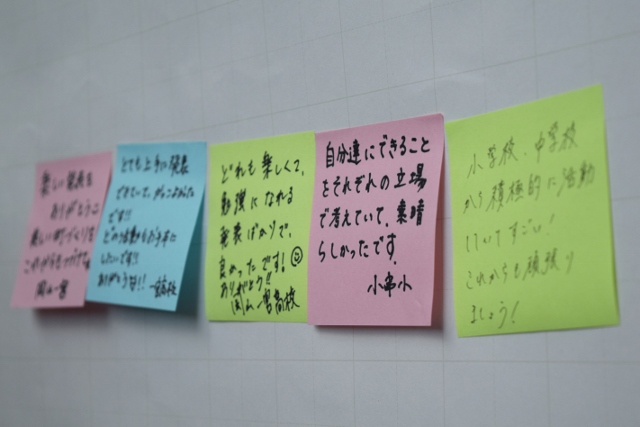 楽しい発表を
ありがとうご
これからもつづけて
岡山一宮
とても上手に発表
できていて、かっこよかった
です!!
どの活動もお手本に
したいです!!
ありがとうな!! 一宮高校
どれも楽しくて、
勉強になれる
発表ばかりで、
良かったです!
ありがとう!!
岡山一宮高校
自分達にできること
をそれぞれの立場
で考えていて、素晴
らしかったです。
小串小
小学校、中学校
から積極的に活動
していてすごい!
これからも頑張り
ましょう!